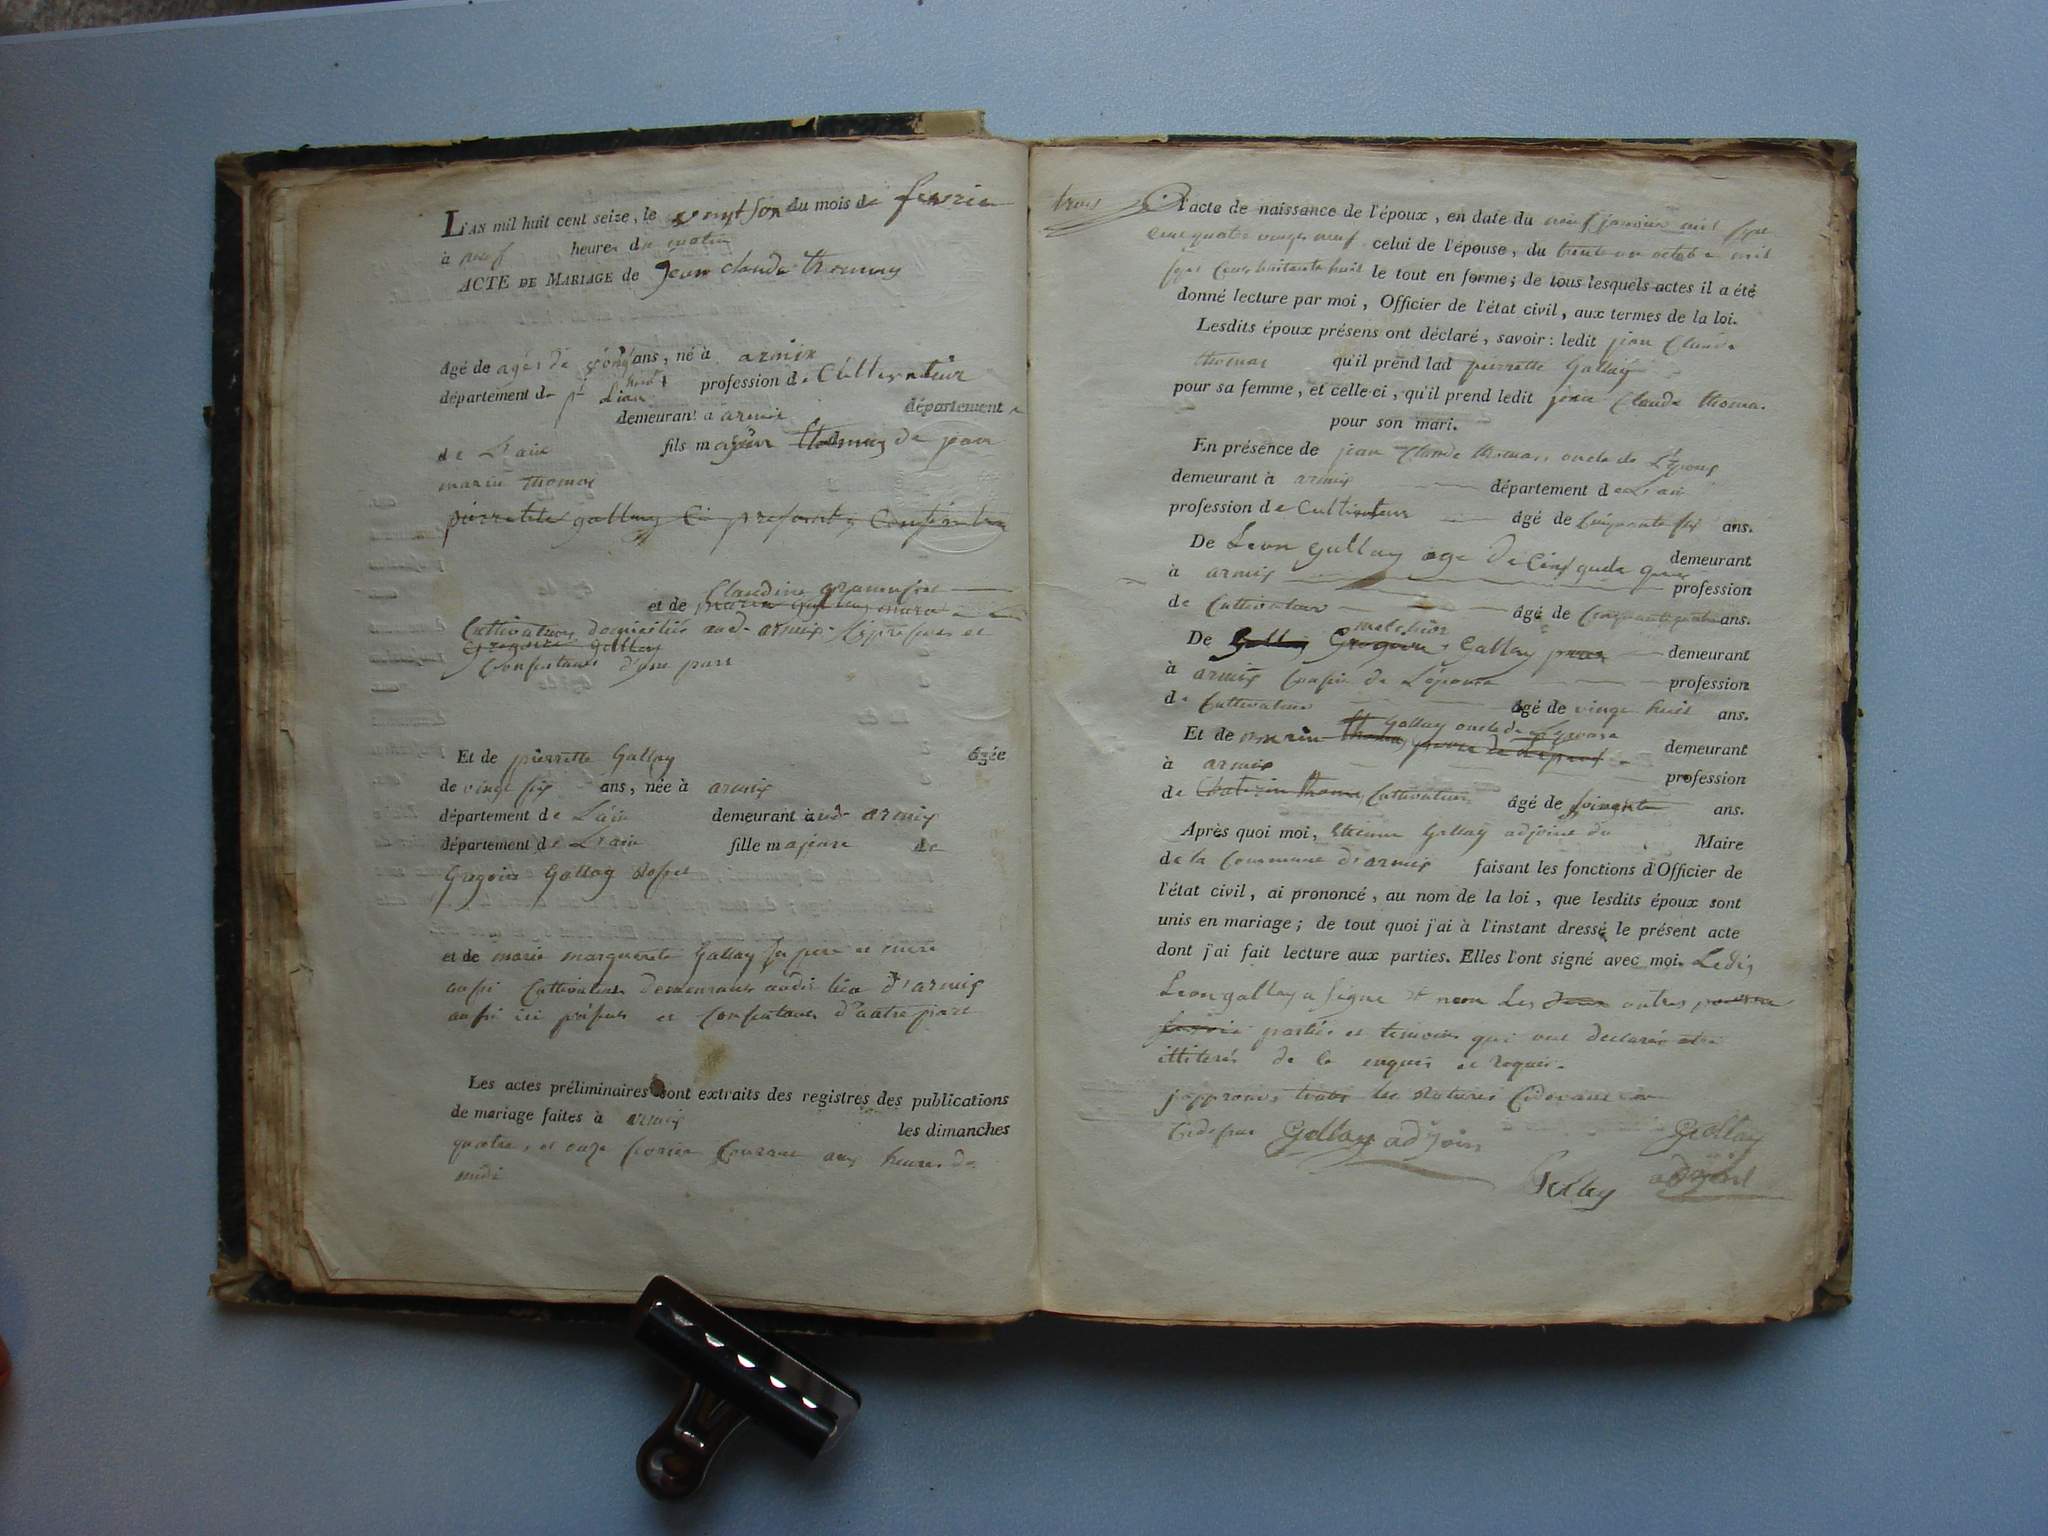 L'AN mil huit cent seize, le du mois de fevrie
à neuf heures du matin
ACTE DE MARIAGE de jean claude thomas
âgé de agés de ans, né à armix
département de L'ain profession de Cultivateur
demeurant a armix département
de L'ain fils majeur thomas de jean
marin thomas
pierrette gallay
Claudine
et de
Cultivateurs domicilié aud. armix
gregoire gallay
Consentans d'une part
Et de pierrette Gallay âgée
de vingt six ans, née à armix
département de L'ain demeurant aud. armix
département de L'ain fille majeure de
Gregoire Gallay
et de marie marguerite Gallay ses pere et mere
aussi Cultivateurs demeurans audit lieu d'armix
aussi ici présens et Consentans d'autre part
Les actes préliminaires sont extraits des registres des publications
de mariage faites à armix les dimanches
quatre, et onze fevrier Courant aux heures de
midi
trois
l'acte de naissance de l'époux, en date du neuf janvier mil sept
cent quatre vingt neuf celui de l'épouse, du trente un octobre mil
sept Cent huitante huit le tout en forme; de tous lesquels actes il a été
donné lecture par moi, Officier de l'état civil, aux termes de la loi.
Lesdits époux présens ont déclaré, savoir: ledit jean Claude
thomas qu'il prend lad pierrette Gallay
pour sa femme, et celle-ci, qu'il prend ledit jean Claude thomas
pour son mari.
En présence de jean Claude thomas oncle de L'Epoux
demeurant à armix département de L'ain
profession de Cultivateur âgé de Cinquante six ans.
De Leon gallay age de demeurant
à armix profession
de Cultivateur âgé de Cinquante quatre ans.
melchior
De Gallay Gregoire Gallay demeurant
à armix Cousin de L'épouse profession
de Cultivateur âgé de vingt huit ans.
Gallay oncle de L'épouse
Et de marin thomas demeurant
à armix profession
de Cultivateur âgé de soixante ans.
Après quoi moi, Etienne Gallay adjoint du Maire
de la Commune d'armix faisant les fonctions d'Officier de
l'état civil, ai prononcé, au nom de la loi, que lesdits époux sont
unis en mariage; de tout quoi j'ai à l'instant dressé le présent acte
dont j'ai fait lecture aux parties. Elles l'ont signé avec moi. Ledit
Leon gallay a signé et non Les autres
parties et temoins qui ont declarés etre
illiterés de ce enquis et requis.
j'approuve toutes les ratures Cidevant
Gallay adjoin Gallay
Gallay adjoint